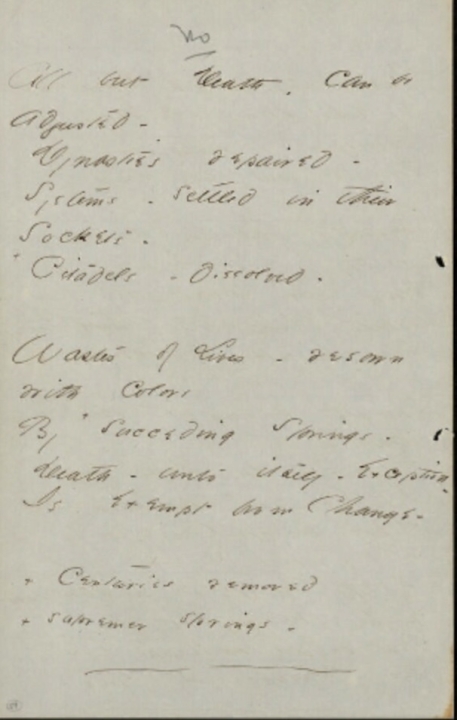 No
All but Death, Can be
Adjusted -
Dynasties repaired -
Systems - settled in their
Sockets -
+ Citadels - Dissolved -
Wastes of Lives - resown
with Colors
By + Succeeding Springs -
Death - unto itself - Exception
Is Exempt from Change -
+ Centuries removed
+ supremer springs -